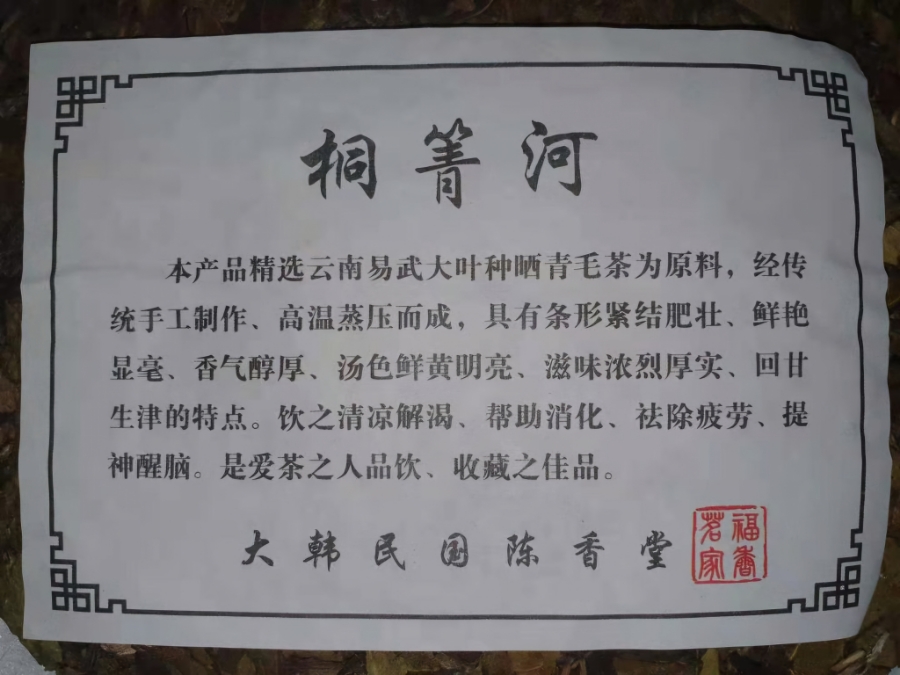 桐箐河
本产品精选云南易武大叶种晒青毛茶为原料，经传
统手工制作、高温蒸压而成，具有条形紧结肥壮、鲜艳
显毫、香气醇厚、汤色鲜黄明亮、滋味浓烈厚实、回甘
生津的特点。饮之清凉解渴、帮助消化、祛除疲劳、提
神醒脑。是爱茶之人品饮、收藏之佳品。
大韩民国陈香堂
福香茗家